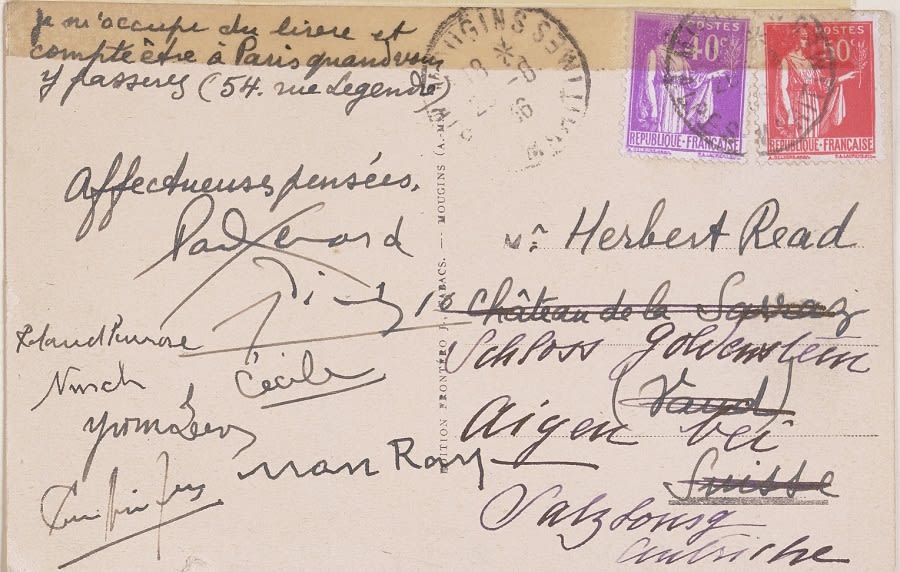 je m'occupe du livre et
compte être à Paris quand vous
y passerez (54. rue Legendre)
Affectueuses pensées.
Paul Eluard
Roland Penrose
Cécile
Nusch
Man Ray
EDITION FRONTÉRO J. TABACS. — MOUGINS (A.-M.
MOUGINS
POSTES
40c
REPUBLIQUE-FRANÇAISE
POSTES
50c
REPUBLIQUE-FRANÇAISE
Mr Herbert Read
Château de la Sarraz
Schloss Goldenstein
(Vaud)
Aigen bei
Suisse
Salzburg
Autriche